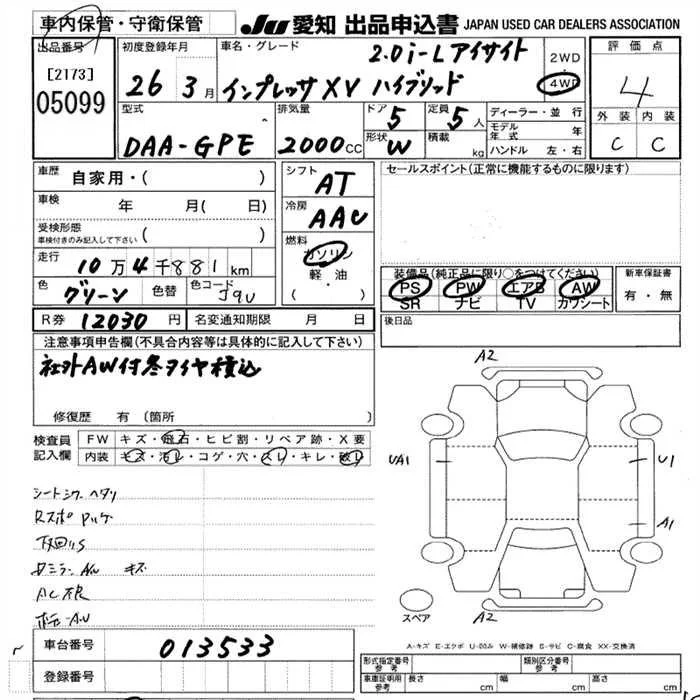 車内保管・守衛保管
JU 愛知 出品申込書 JAPAN USED CAR DEALERS ASSOCIATION
出品番号
[2173]
05099
初度登録年月
26 3月
車名・グレード
2.0i-L アイサイト
インプレッサ XV ハイブリッド
2WD
4WD
評価点
4
外装 内装
C C
型式
DAA-GPE
排気量
2000CC
ドア 5
定員 5人
形状 W
積載 kg
ディーラー・並行
モデル年式 年
ハンドル 左・右
車歴 自家用・( )
車検 年 月( 日)
受検形態
車検付きのみ記入して下さい ( )
走行 10万4千881km
色 グリーン 色替 色コード J9U
R券 12030円 名変通知期限 月 日
シフト
AT
冷房
AAC
燃料
ガソリン
軽・油
( )
セールスポイント(正常に機能するものに限ります)
装備品(純正品に限り○をつけてください)
PS PW エアB AW
SR ナビ TV カワシート
新車保証書
有・無
後日品
注意事項申告欄(不具合内容等は具体的に記入して下さい)
社外AW付冬タイヤ積込
修復歴 有 (箇所
検査員記入欄
FW キズ・飛石・ヒビ割・リペア跡・X要
内装 キズ・汚レ・コゲ・穴・スレ・キレ・破レ
シートシワ ヘタリ
下回りS
キズ
A2
UA1
U1
A1
A2
スペア
A-キズ E-エクボ U-凹み W-補修跡 S-サビ C-腐食 XX-交換済
車台番号 013533
登録番号
形式指定番号 参考
類別区分番号 参考
車庫証明用 参考 長さ cm 幅 cm 高さ cm